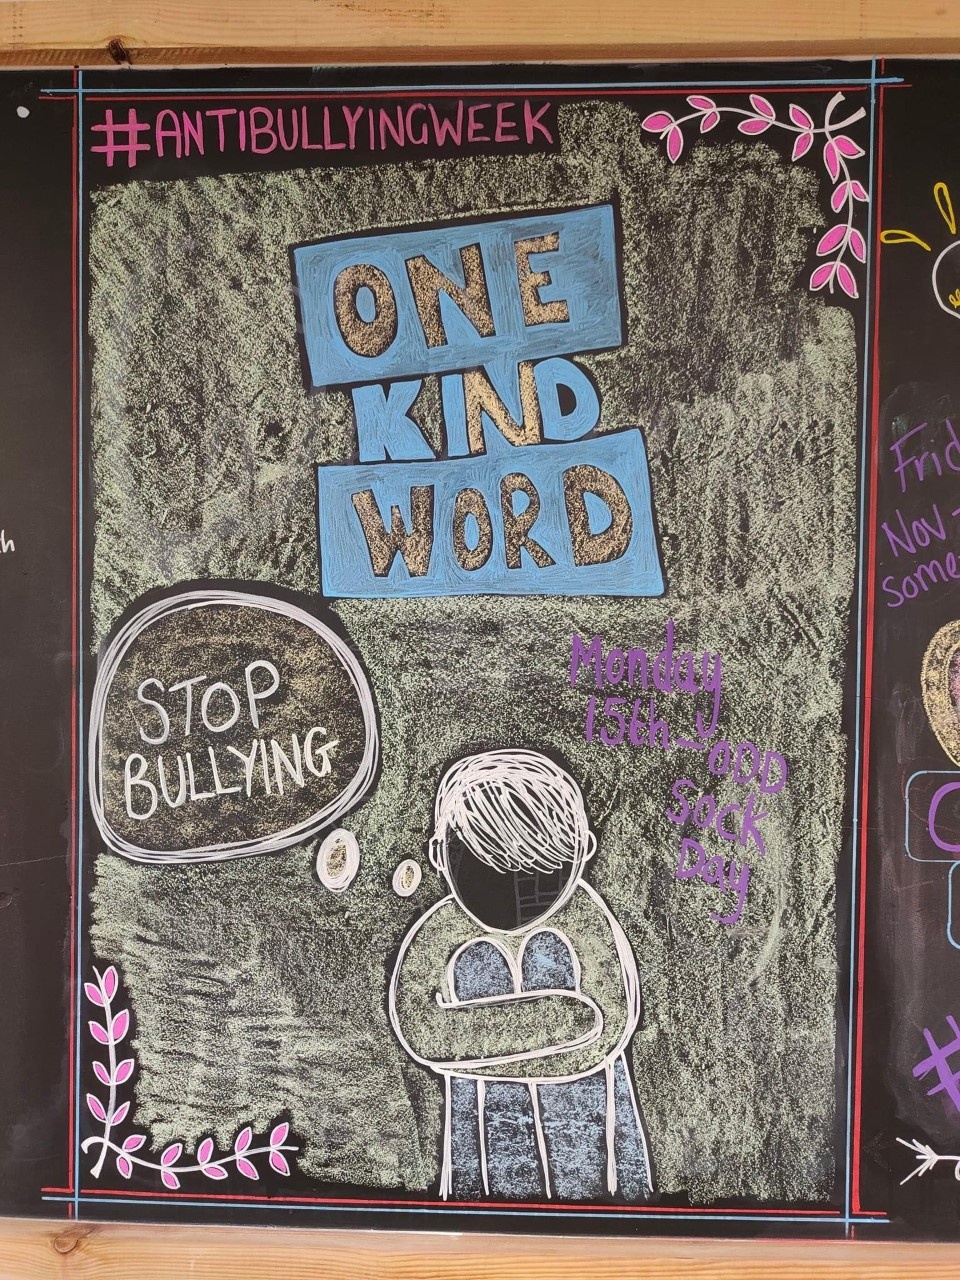 #ANTIBULLYINGWEEK
ONE
KIND
WORD
STOP
BULLYING
Monday
15th - ODD
Sock
Day
Nov -
some